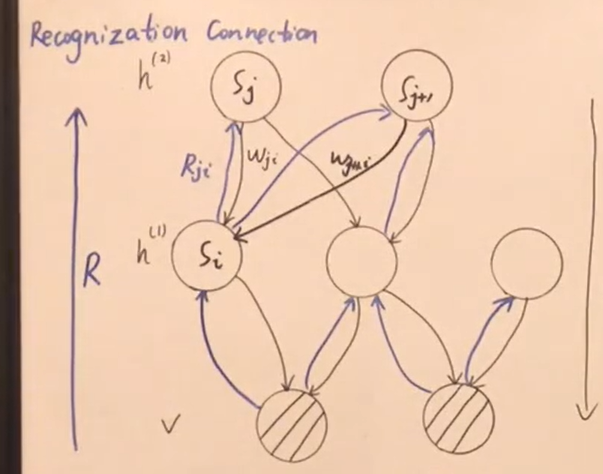 Recognization Connection
h^(2)
S_j
S_j+1
R_ji
w_ji
w_j+1i
R
h^(1)
S_i
v